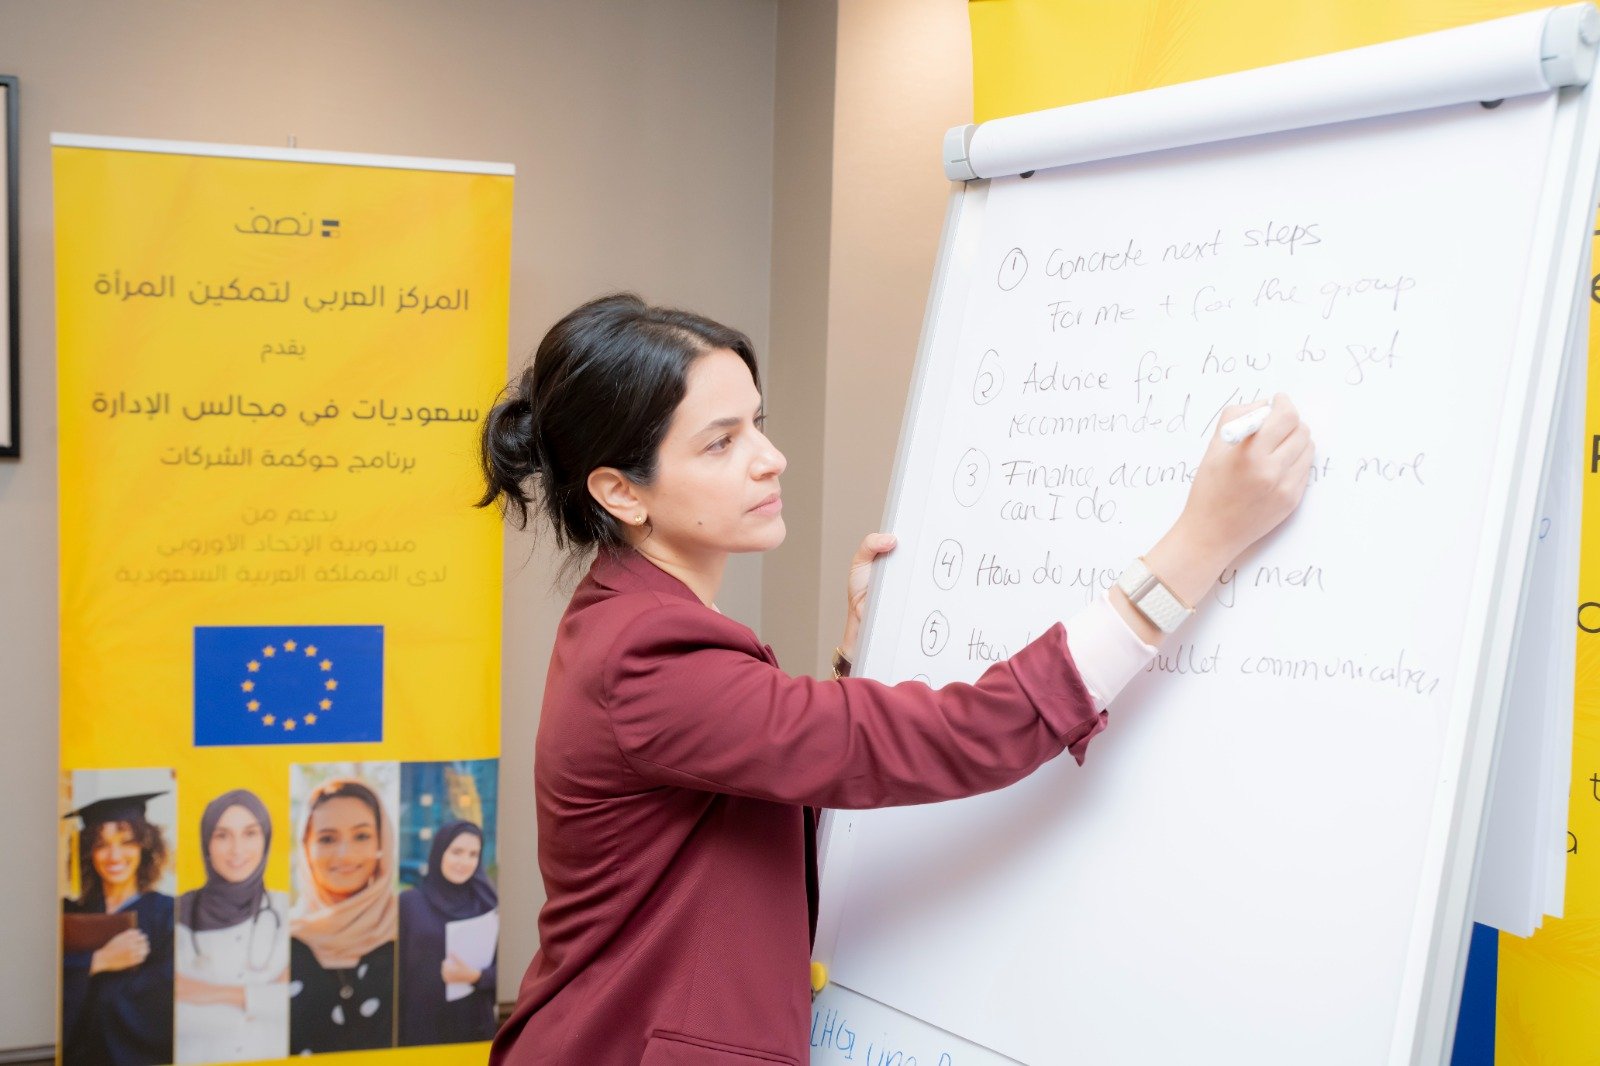 نصف
المركز العربي لتمكين المرأة
يقدم
سعوديات في مجالس الإدارة
برنامج حوكمة الشركات
بدعم من
مندوبية الإتحاد الأوروبي
لدى المملكة العربية السعودية
① Concrete next steps
For me + for the group
② Advice for how to get
recommended
③ Finance more
can I do.
④ How do men
⑤ communication